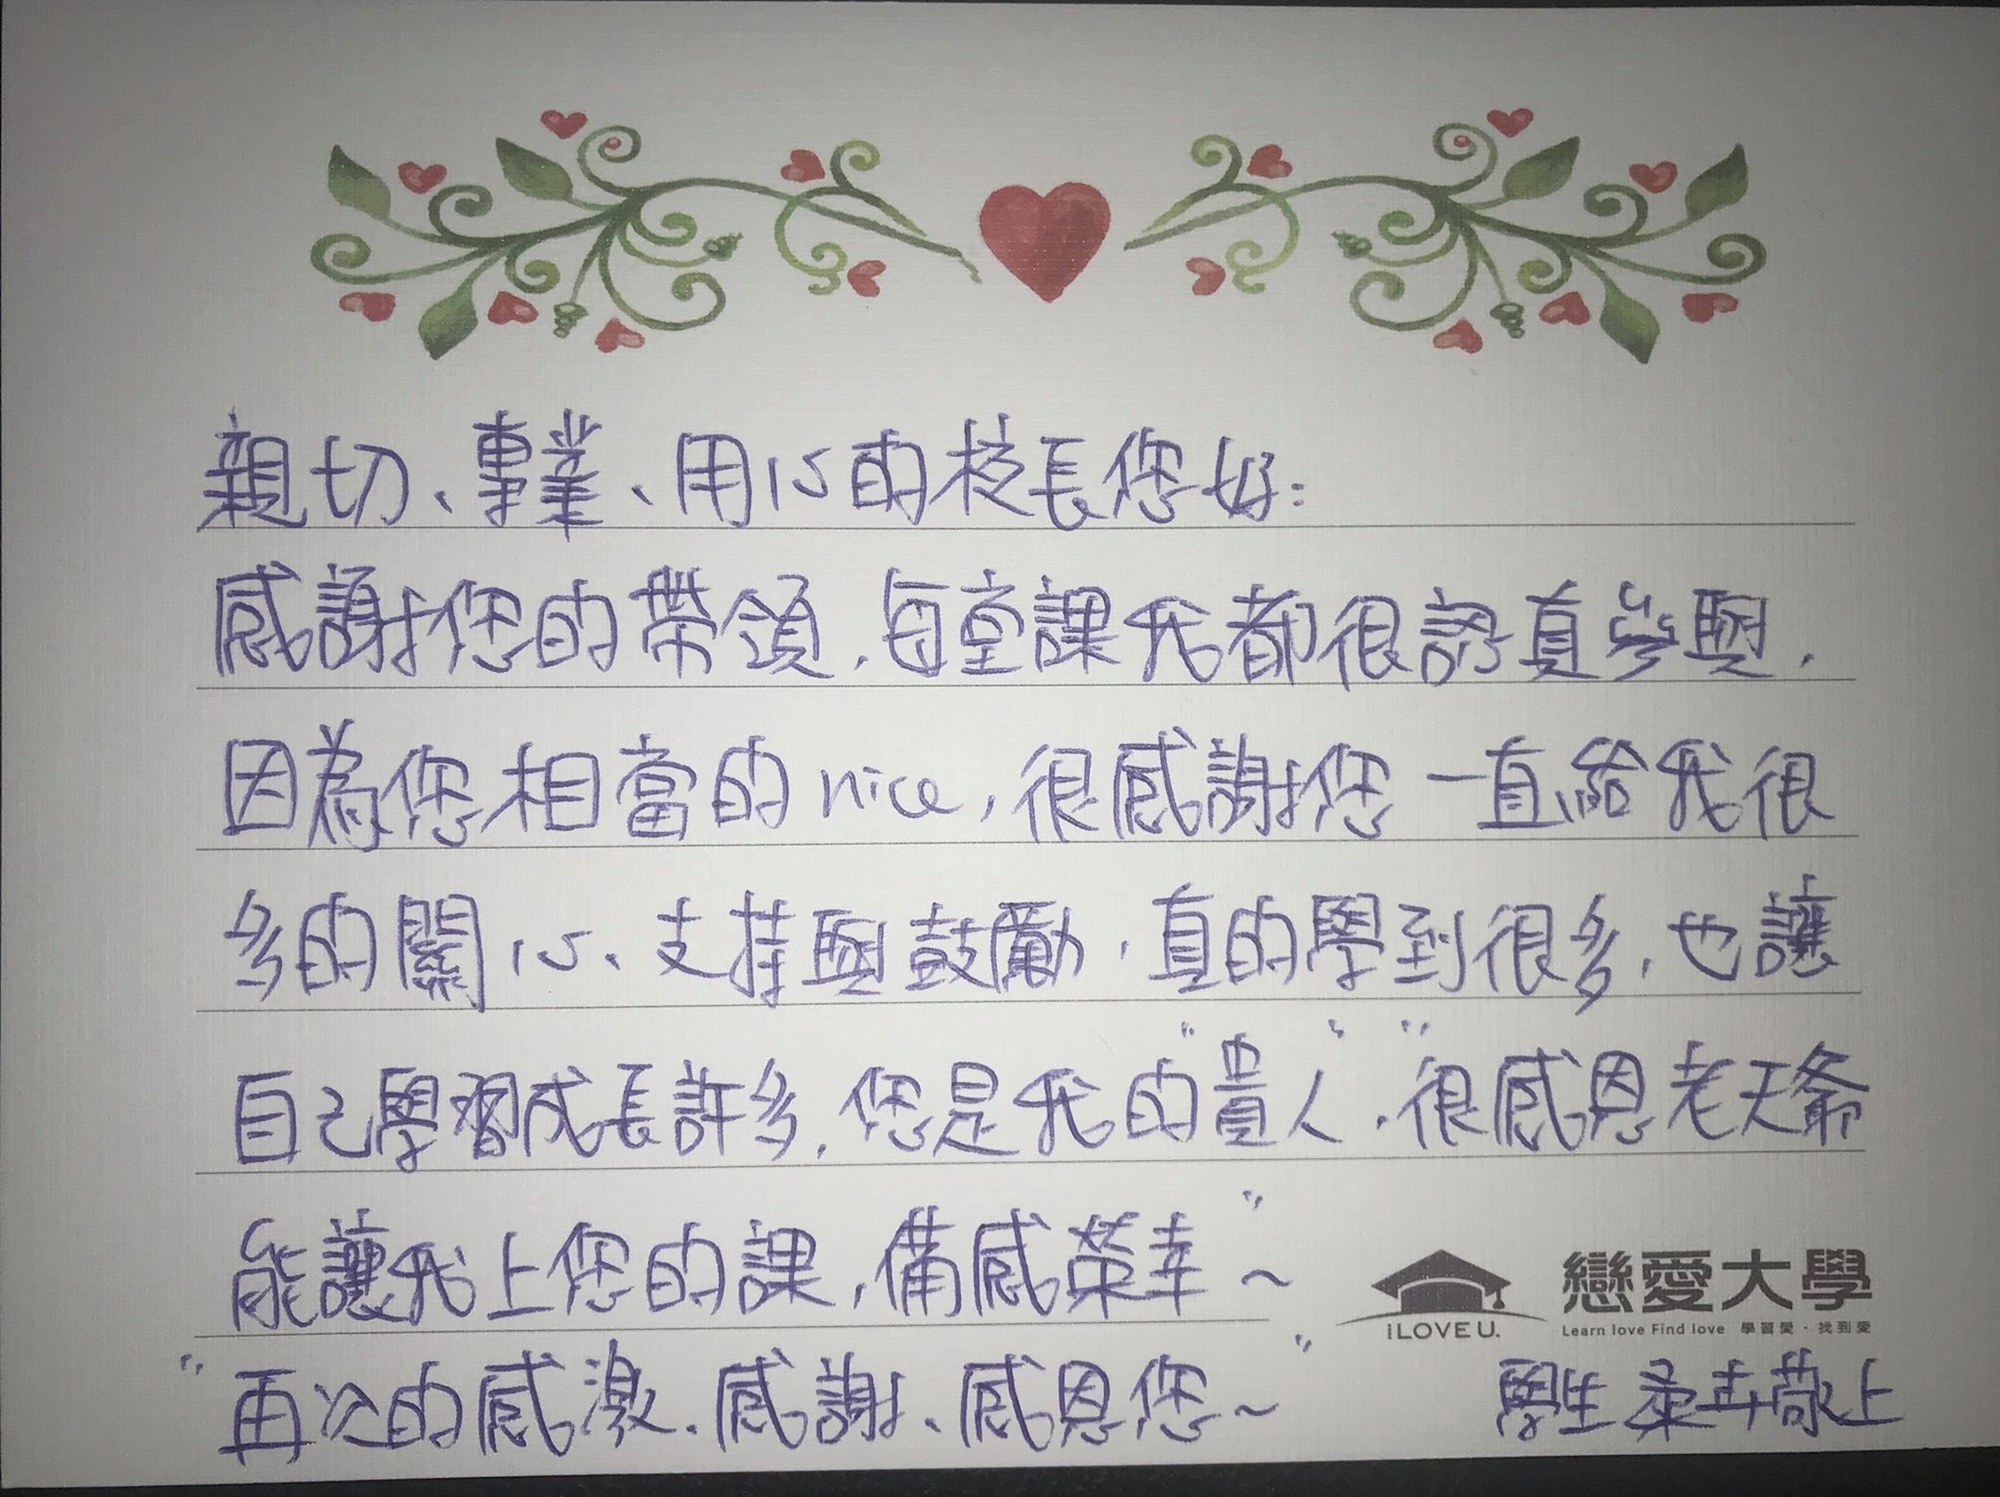 親切、專業、用心的校長您好:
感謝您的帶領,每堂課我都很認真參與,
因為您相當的nice,很感謝您一直給我很
多的關心、支持與鼓勵,真的學到很多,也讓
自己學習成長許多,您是我的"貴人"."很感恩老天爺
能讓我上您的課,備感榮幸~"
iLOVE U.
戀愛大學
Learn love Find love 學習愛・找到愛
"再次的感激、感謝、感恩您~"
學生 柔卉敬上